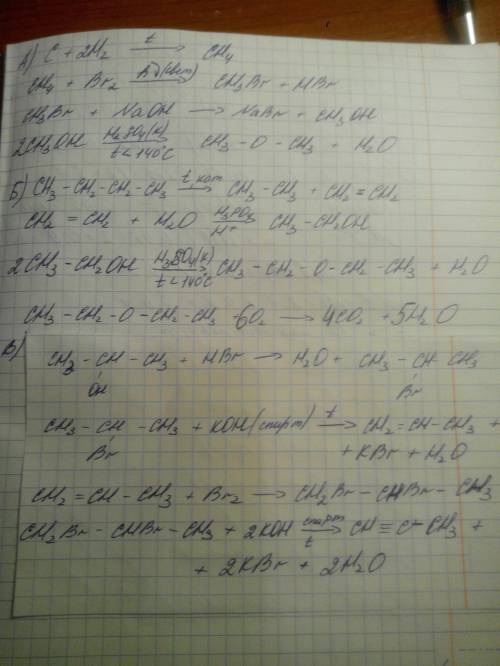 А) C + 2H₂ —t→ CH₄
CH₄ + Br₂ —hν(свет)→ CH₃Br + HBr
CH₃Br + NaOH → NaBr + CH₃OH
2CH₃OH —H₂SO₄(к) t<140°C→ CH₃-O-CH₃ + H₂O
Б) CH₃-CH₂-CH₂-CH₃ —t, кат→ CH₃-CH₃ + CH₂=CH₂
CH₂=CH₂ + H₂O —H⁺→ CH₃-CH₂OH
2CH₃-CH₂OH —(к) t<140°C→ CH₃-CH₂-O-CH₂-CH₃ + H₂O
CH₃-CH₂-O-CH₂-CH₃ 6O₂ → 4CO₂ + 5H₂O
В)
CH₃-CH-CH₃ + HBr → H₂O + CH₃-CH-CH₃
OH Br
CH₃-CH-CH₃ + KOH(спирт) —t→ CH₂=CH-CH₃ +
Br + KBr + H₂O
CH₂=CH-CH₃ + Br₂ → CH₂Br-CHBr-CH₃
CH₂Br-CHBr-CH₃ + 2KOH —спирт t→ CH≡C-CH₃ +
+ 2KBr + 2H₂O